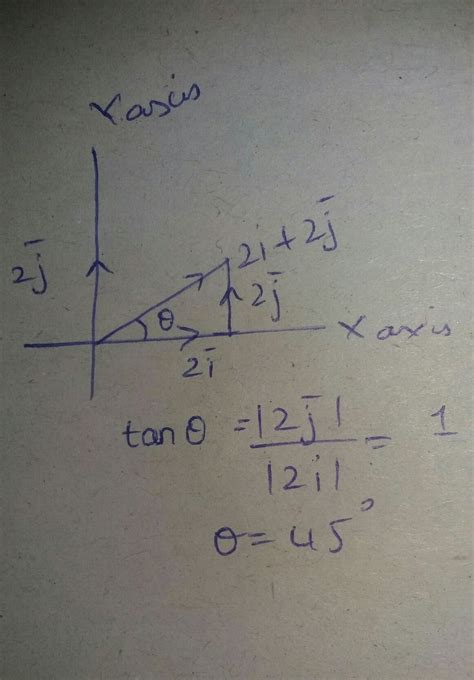 Y axis
2j̄
2i + 2j̄
2j̄
θ
X axis
2ī
tan θ = |2j̄| / |2i| = 1
θ = 45°